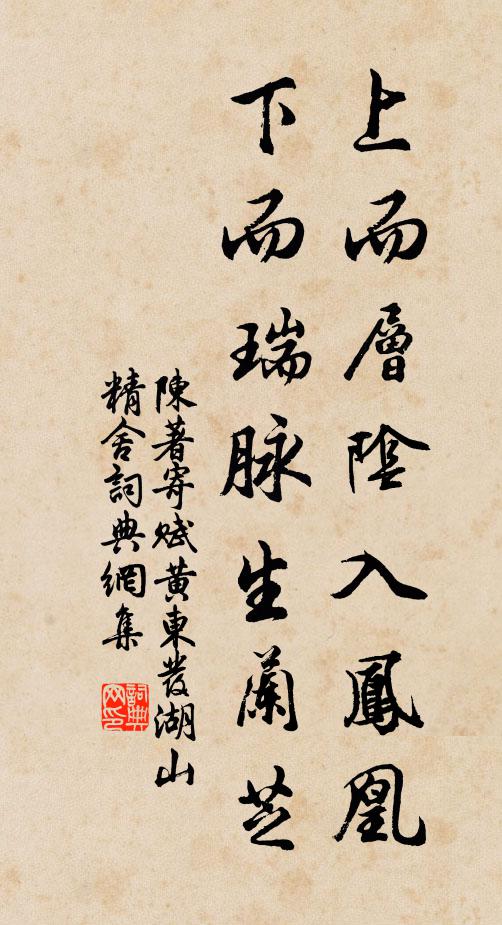 上而層陰入鳳凰
下而瑞脉生蘭芝
陳著寄賦黃東發湖山
精舍詞典網集
詞典網印